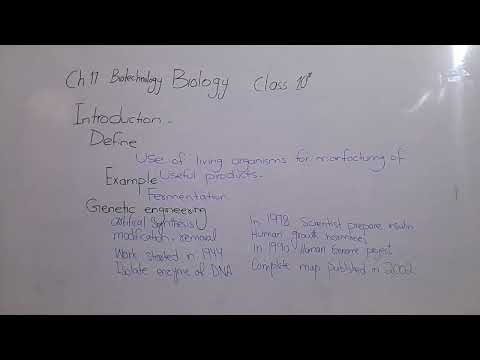 Ch 17 Biotechnology Biology Class 10th
Introduction.
Define
Use of living organisms for manfacturing of
Useful products.
Example
Fermentation
Genetic engineering
artifical synthesis
modification, removal
Work started in 1944
Isolate enzyme of DNA
In 1978 Scientist prepare insulin
Human growth hormones
In 1990 Human Genome project
Complete map published in 2002